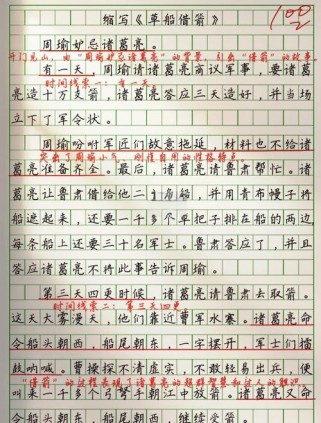 缩写《草船借箭》
100
周瑜妒忌诸葛亮。
开门见山，由“周瑜妒忌诸葛亮”的背景，引出“借箭”的故事。
有一天，周瑜请诸葛亮商议军事，要诸葛
时间线索一：有一天
亮造十万支箭，诸葛亮答应三天造好，并当场
立下了军令状。
周瑜吩咐军匠们故意拖延，材料也不给诸
突出了周瑜小气、刚愎自用的性格特点。
葛亮准备齐全。最后，诸葛亮请鲁肃帮忙。诸
葛亮让鲁肃借给他二十条船，并用青布幔子将
船遮起来，还要一千多个草把子排在船的两边，
每条船上还要三十名军士。鲁肃答应了，并且
答应诸葛亮不将此事告诉周瑜。
第三天四更时候，诸葛亮请鲁肃去取箭。
时间线索二：第三天四更
这天大雾漫天，他们靠近曹军水寨。诸葛亮命
令船头朝西，船尾朝东，一字摆开，军士们擂
鼓呐喊。曹操探不清虚实，不敢轻易出兵，便
“借箭”的过程表现了诸葛亮的超群智慧和过人的胆识。
叫来一千多个弓弩手朝江中放箭。诸葛亮又命
令船头朝东，船尾朝西，继续受箭。